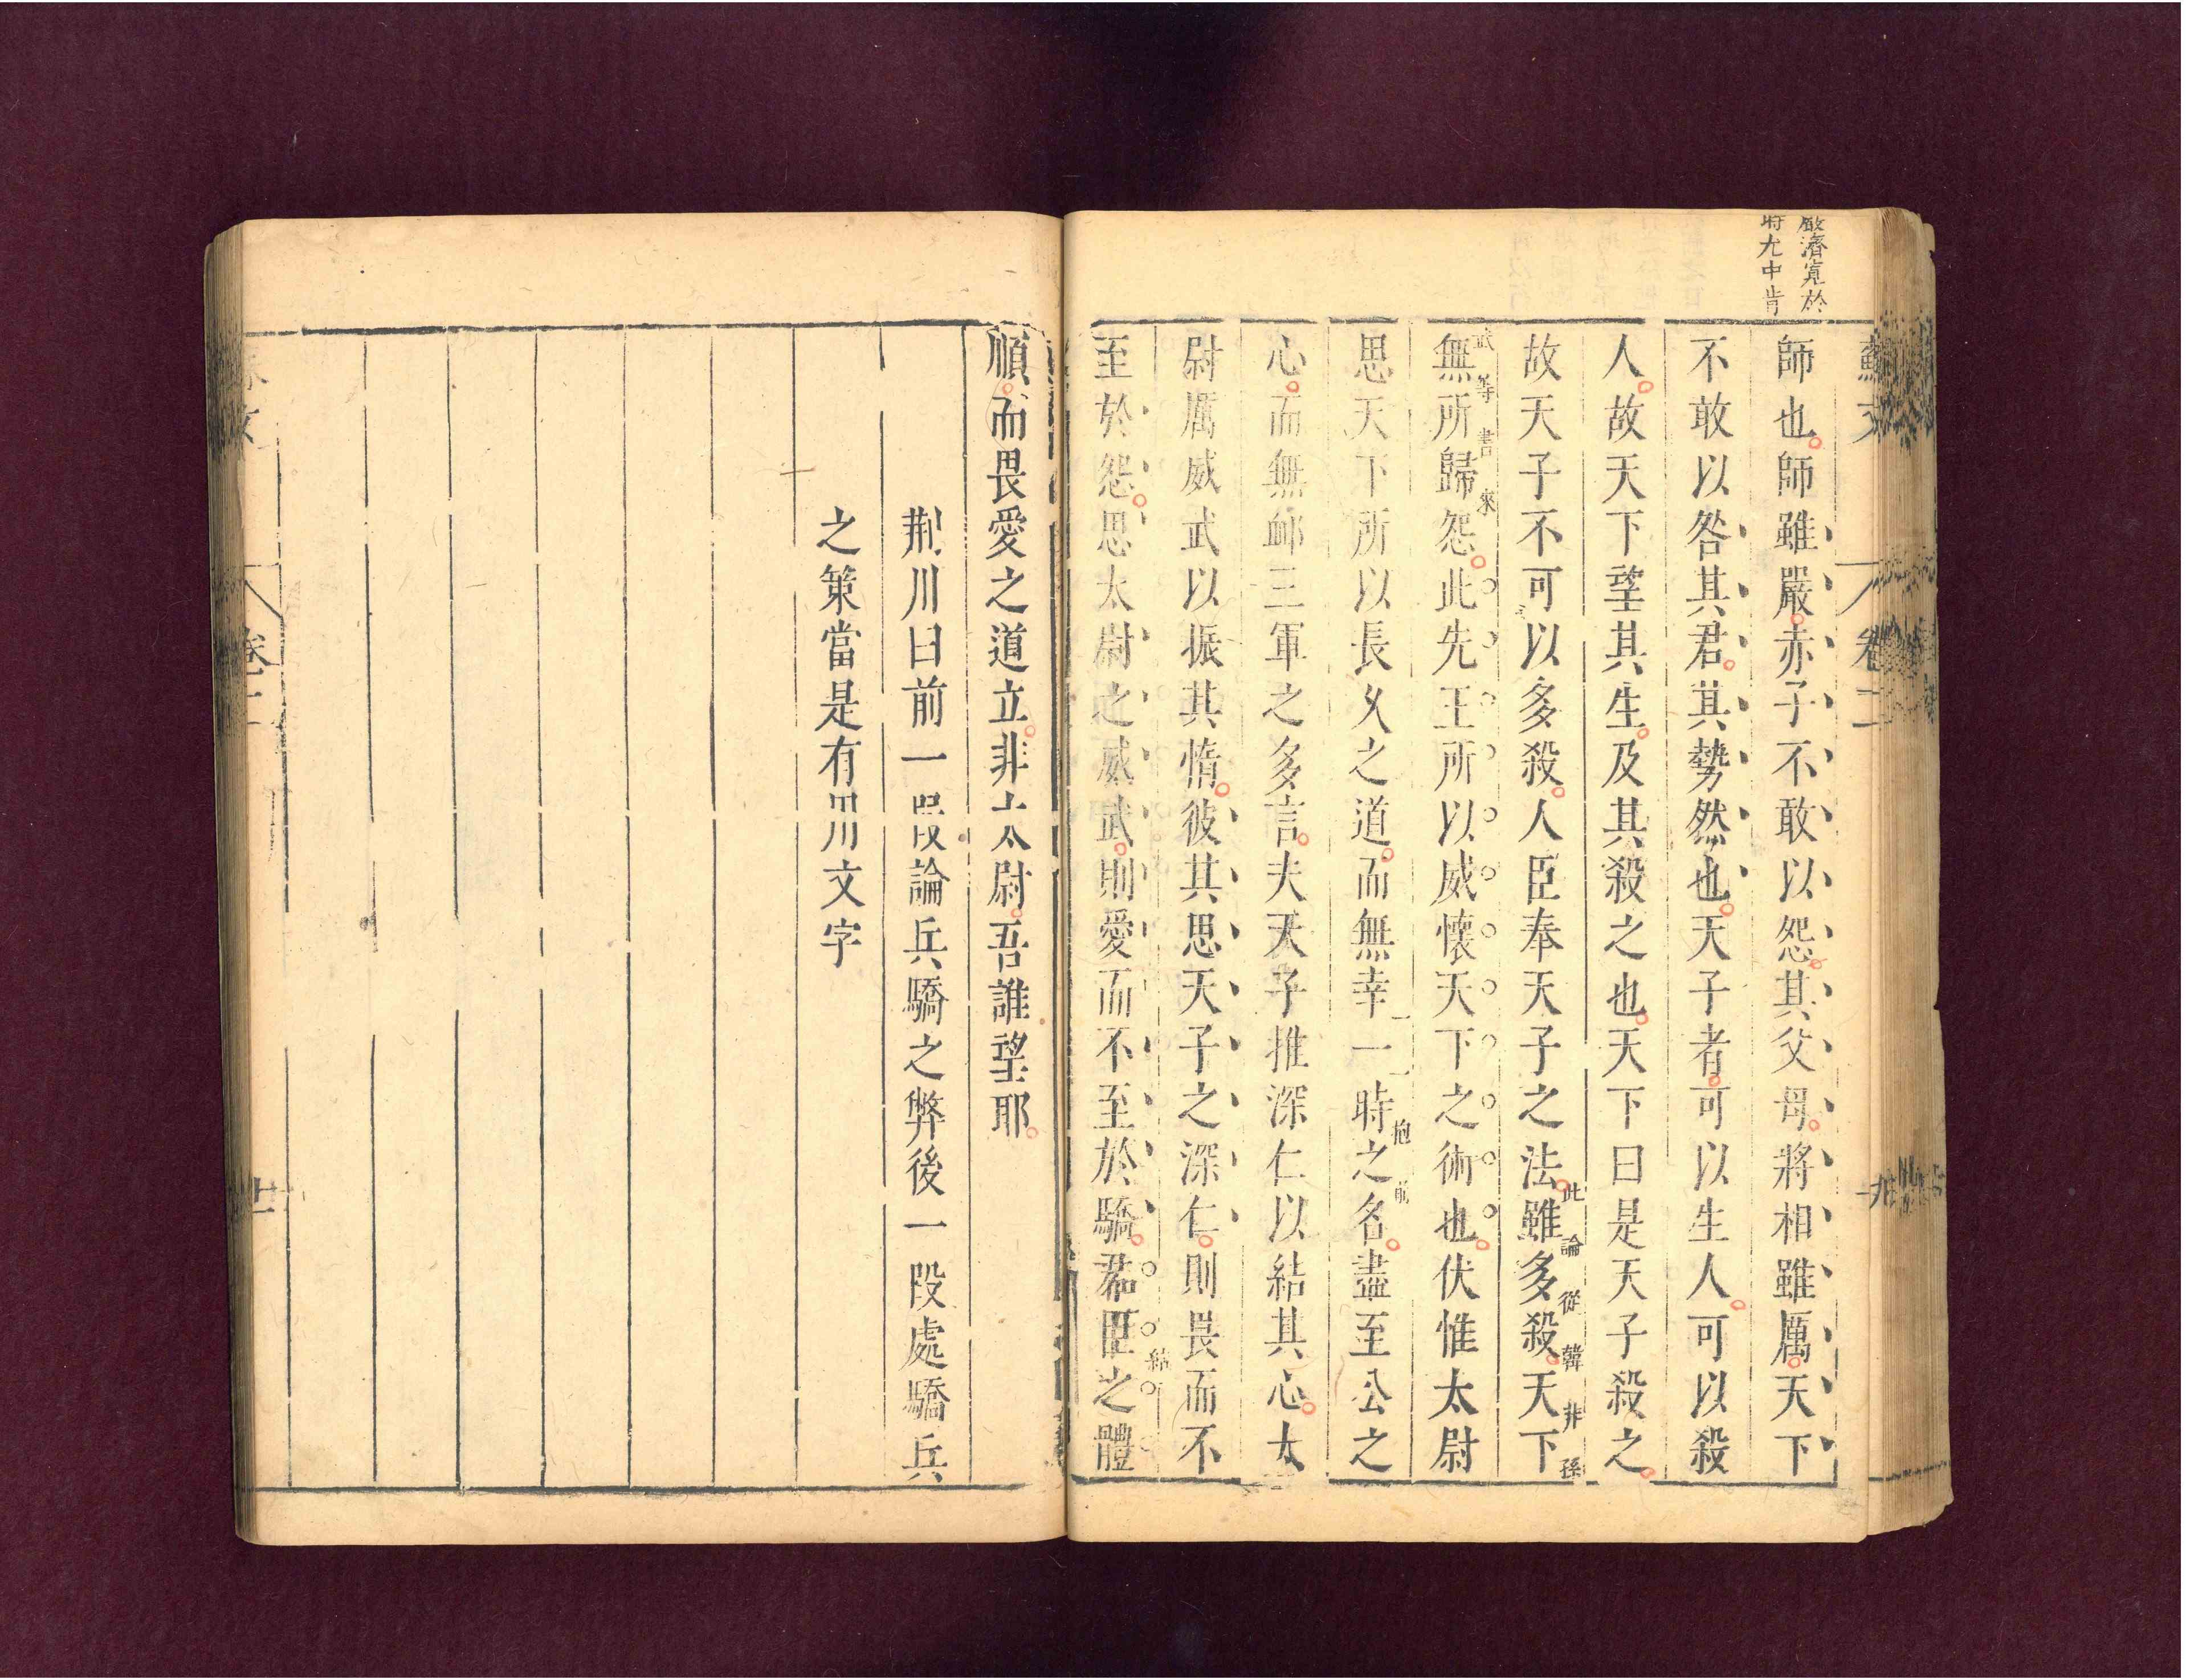 嚴濟寛於
時尤中肯
蘇文
卷二
師也師雖嚴赤子不敢以怨其父母將相雖厲天下
不敢以咎其君其勢然也天子者可以生人可以殺
人故天下望其生及其殺之也天下曰是天子殺之
故天子不可以多殺人臣奉天子之法雖多殺天下
此論從韓非孫
武等書來
無所歸怨此先王所以威懷天下之術也伏惟太尉
思天下所以長久之道而無幸一時之名盡至公之
抱前
心而無䘏三軍之多言夫天子推深仁以結其心太
尉厲威武以振其惰彼其思天子之深仁則畏而不
至於怨思太尉之威武則愛而不至於驕君臣之體
結
順而畏愛之道立非太尉吾誰望耶
荆川曰前一段論兵驕之弊後一段處驕兵
之策當是有用文字
卷二